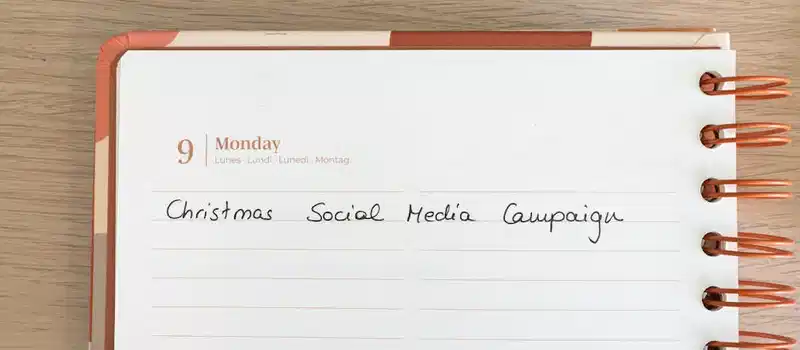 9 Monday
Lunes Lundi Lunedì Montag
Christmas Social Media Campaign